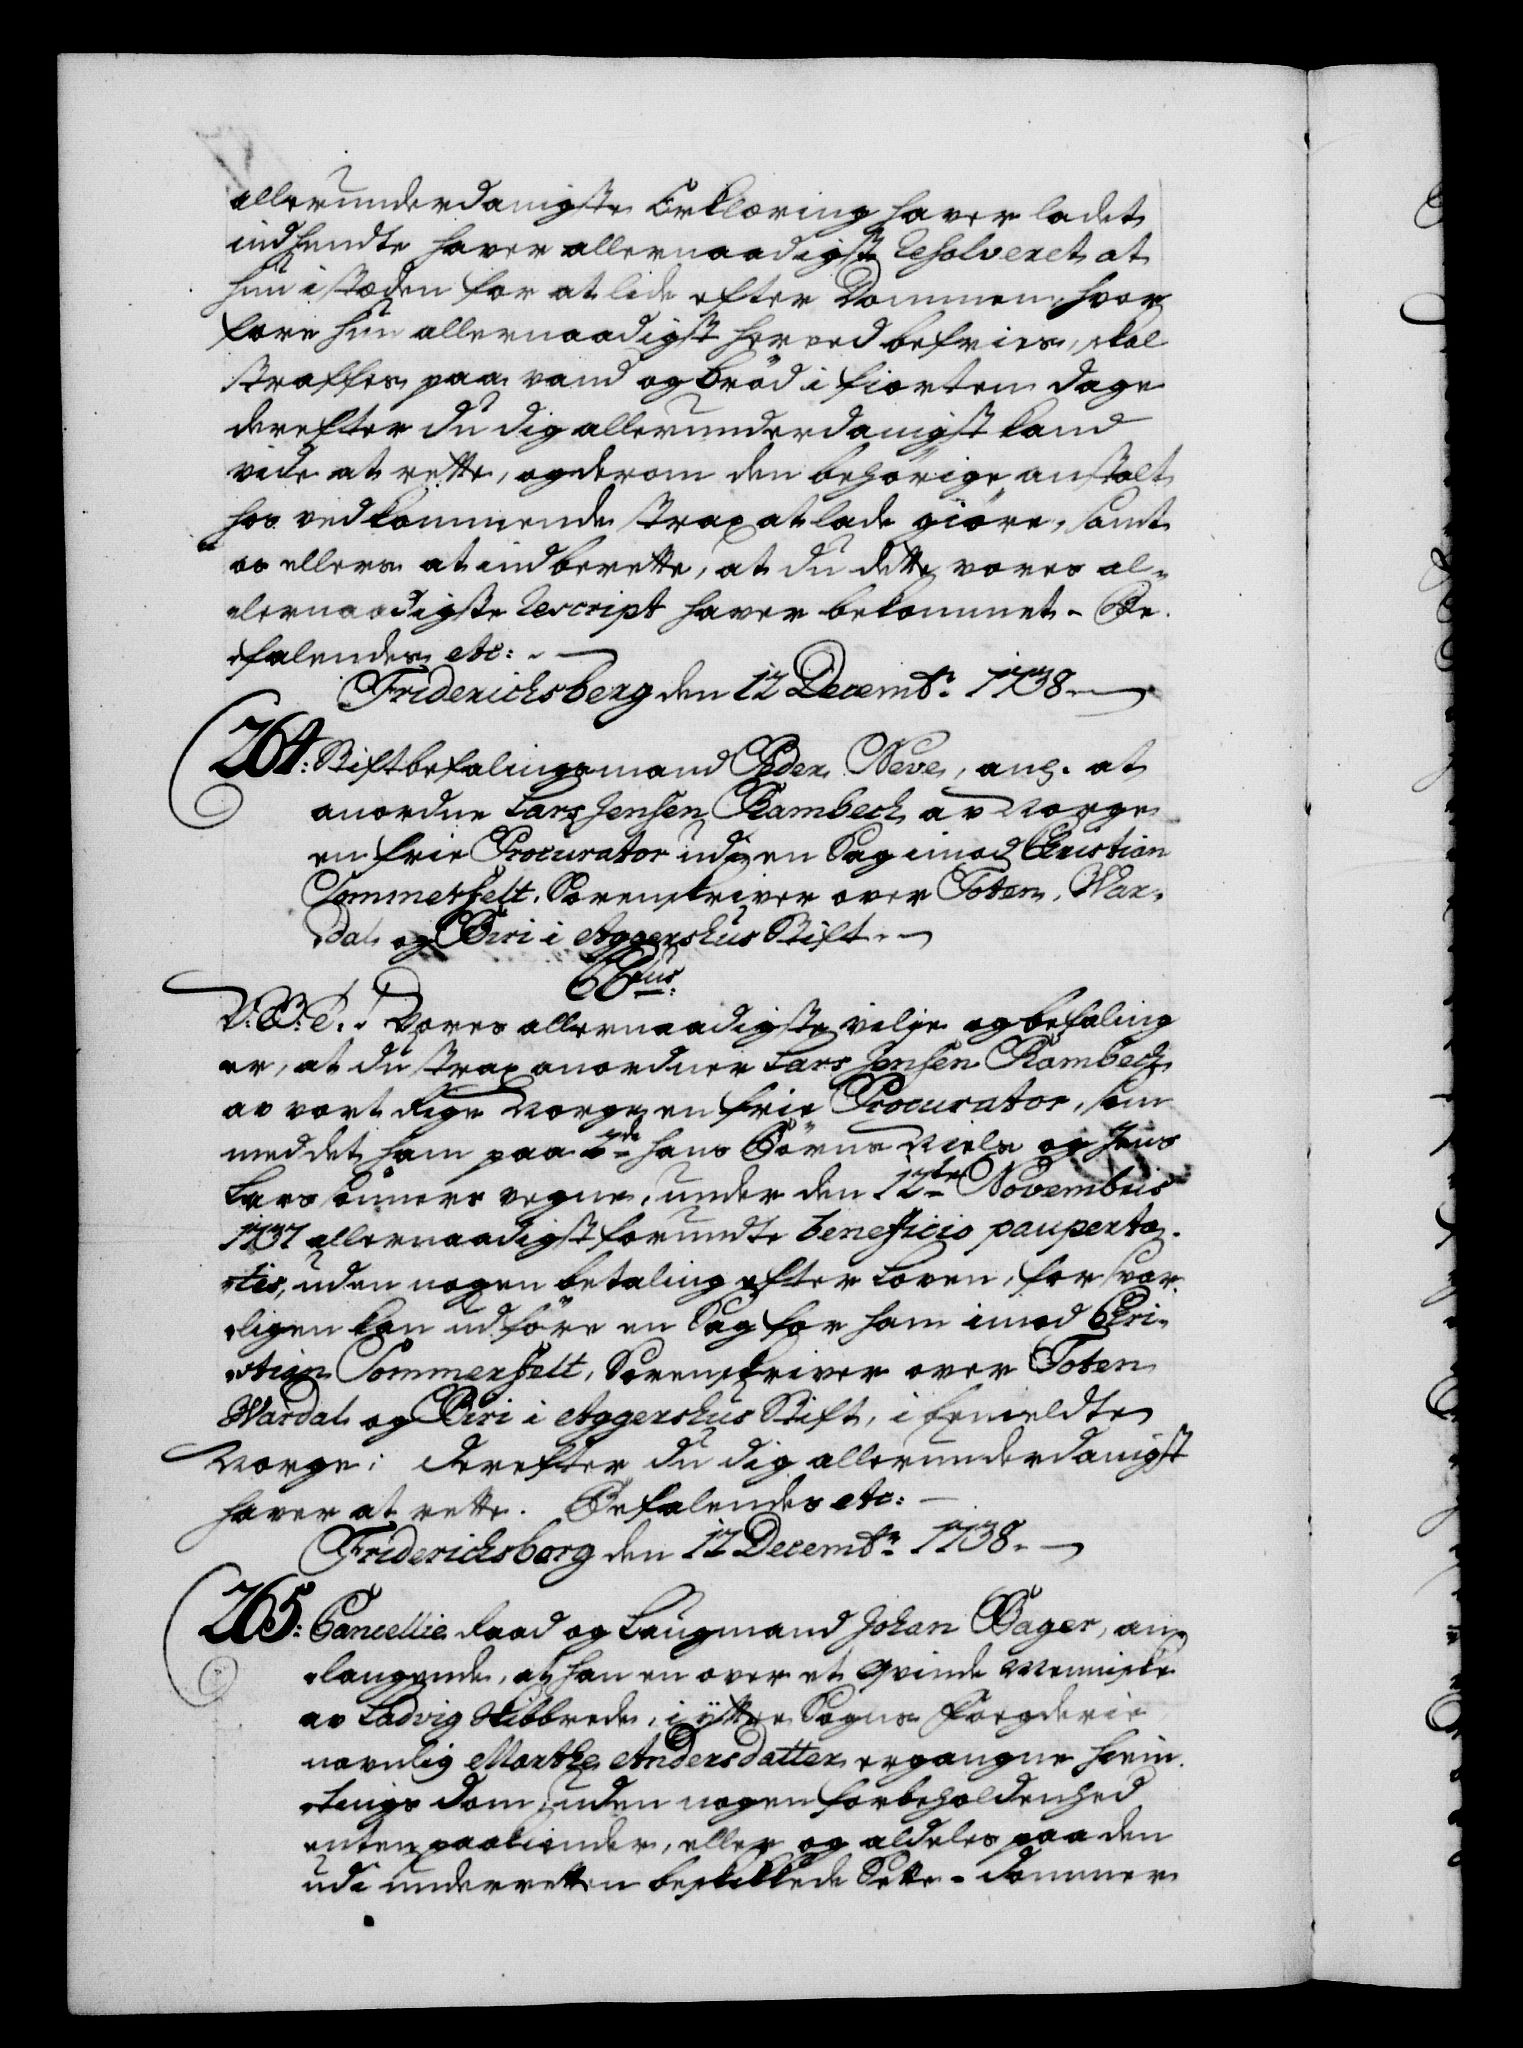 allerunderdanigste Erklæring haver ladet
indhendte haver allernaadigst Resolveret at
hun i stæden for at lide efter Dommen, hvor
fore hun allernaadigst herved befries, skal
straffes paa vand og brød i fiorten dage
derefter du dig allerunderdanigst kand
vide at rette, og derom den behørige anstalt
hos vedkommende strax at lade giöre, samt
os ellers at indberette, at du dette vores al-
lernaadigste Rescript haver bekommet. Be-
falendes etc:
Friderichsberg den 12 Decembr. 1738.
264: Stiftbefalingsmand Peder Neve, ang. at
anordne Lars Jensen Rambech av Norge
en frie Procurator udi en Sag imod Christian
Sommerfelt. Sorenskriver over Toten, War-
dal og Biri i Aggershus Stift.
C6tus.
V. G. T. Vores allernaadigste vilje og befaling
er, at du strax anordner Lars Jensen Rambech
av vort Rige Norge en frie Procurator, som
med det ham paa 2de hans Börns Niels og Jens
Lars sönners vegne, under den 12te Novembris
1737 allernaadigst forundte beneficio pauperta-
tis, uden nogen betaling efter Loven, forsvar-
ligen kan udföre en Sag for ham imod Chri-
stian Sommerfelt, Sorenskriver over Toten
Wardal og Biri i Aggershus Stift, i bemeldte
Norge; derefter du dig allerunderdanigst
haver at rette. Befalendes etc:
Friderichsborg den 12 Decembr. 1738.
265: Cancellie Raad og Laugmand Johan Bager, an-
langende, at han en over et Qvinde Menniske
av Ladvig Skibbrede, i ÿttre Sogns Foegderie
navnlig Marthe Andersdatter ergangne Hiem-
tings dom, uden nogen forbeholdenhed
enten paakiender, eller og aldeles paa den
udi underretten beskikkede Sette-dommer